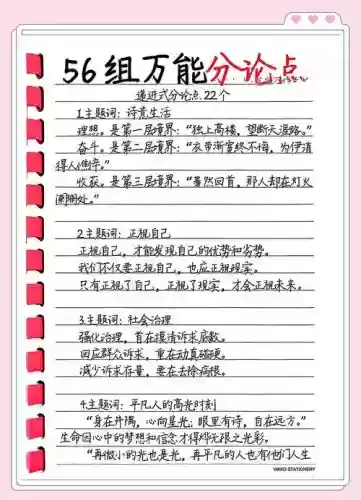 56组万能分论点
递进式分论点22个
1.主题词：诗意生活
理想。是第一层境界：“独上高楼，望断天涯路。”
奋斗。是第二层境界：“衣带渐宽终不悔，为伊消
得人憔悴。”
收获。是第三层境界：“蓦然回首，那人却在灯火
阑珊处。”
2.主题词：正视自己
正视自己，才能发现自己的优势和劣势。
我们不仅要正视自己，也应正视现实。
只有正视了自己，正视了现实，才会正视未来。
3.主题词：社会治理
强化治理，首在摸清诉求底数。
回应群众诉求，重在动真碰硬。
减少诉求存量，要在去除病根。
4.主题词：平凡人的高光时刻
“身在井隅，心向星光；眼里有诗，自在远方。”
生命因心中的梦想和信念才得焕无限之光彩。
“再微小的光也是光，再平凡的人也有他们人生
VIKKO STATIONERY